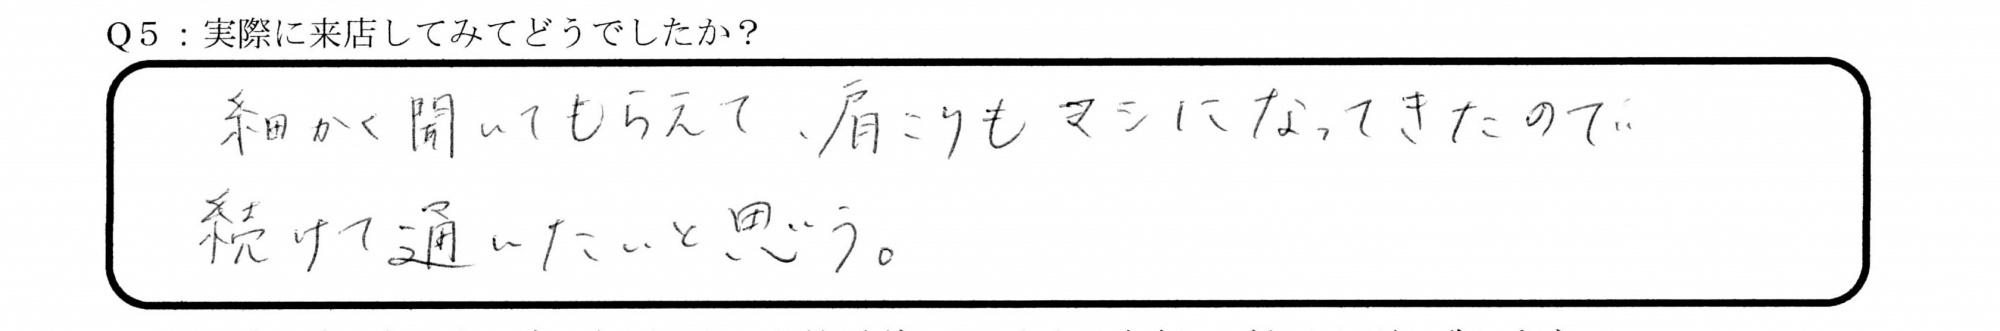 Q5：実際に来店してみてどうでしたか？
細かく聞いてもらえて、肩こりもマシになってきたので
続けて通いたいと思う。